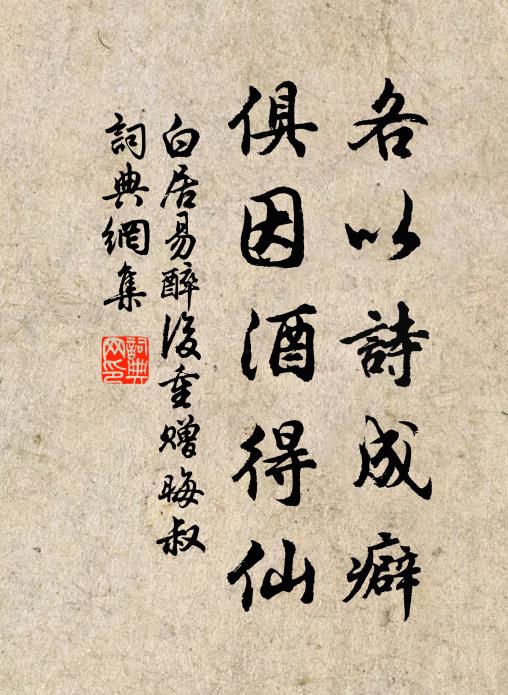 各以詩成癖
俱因酒得仙
白居易醉後重贈晦叔
詞典網集
詞典网印